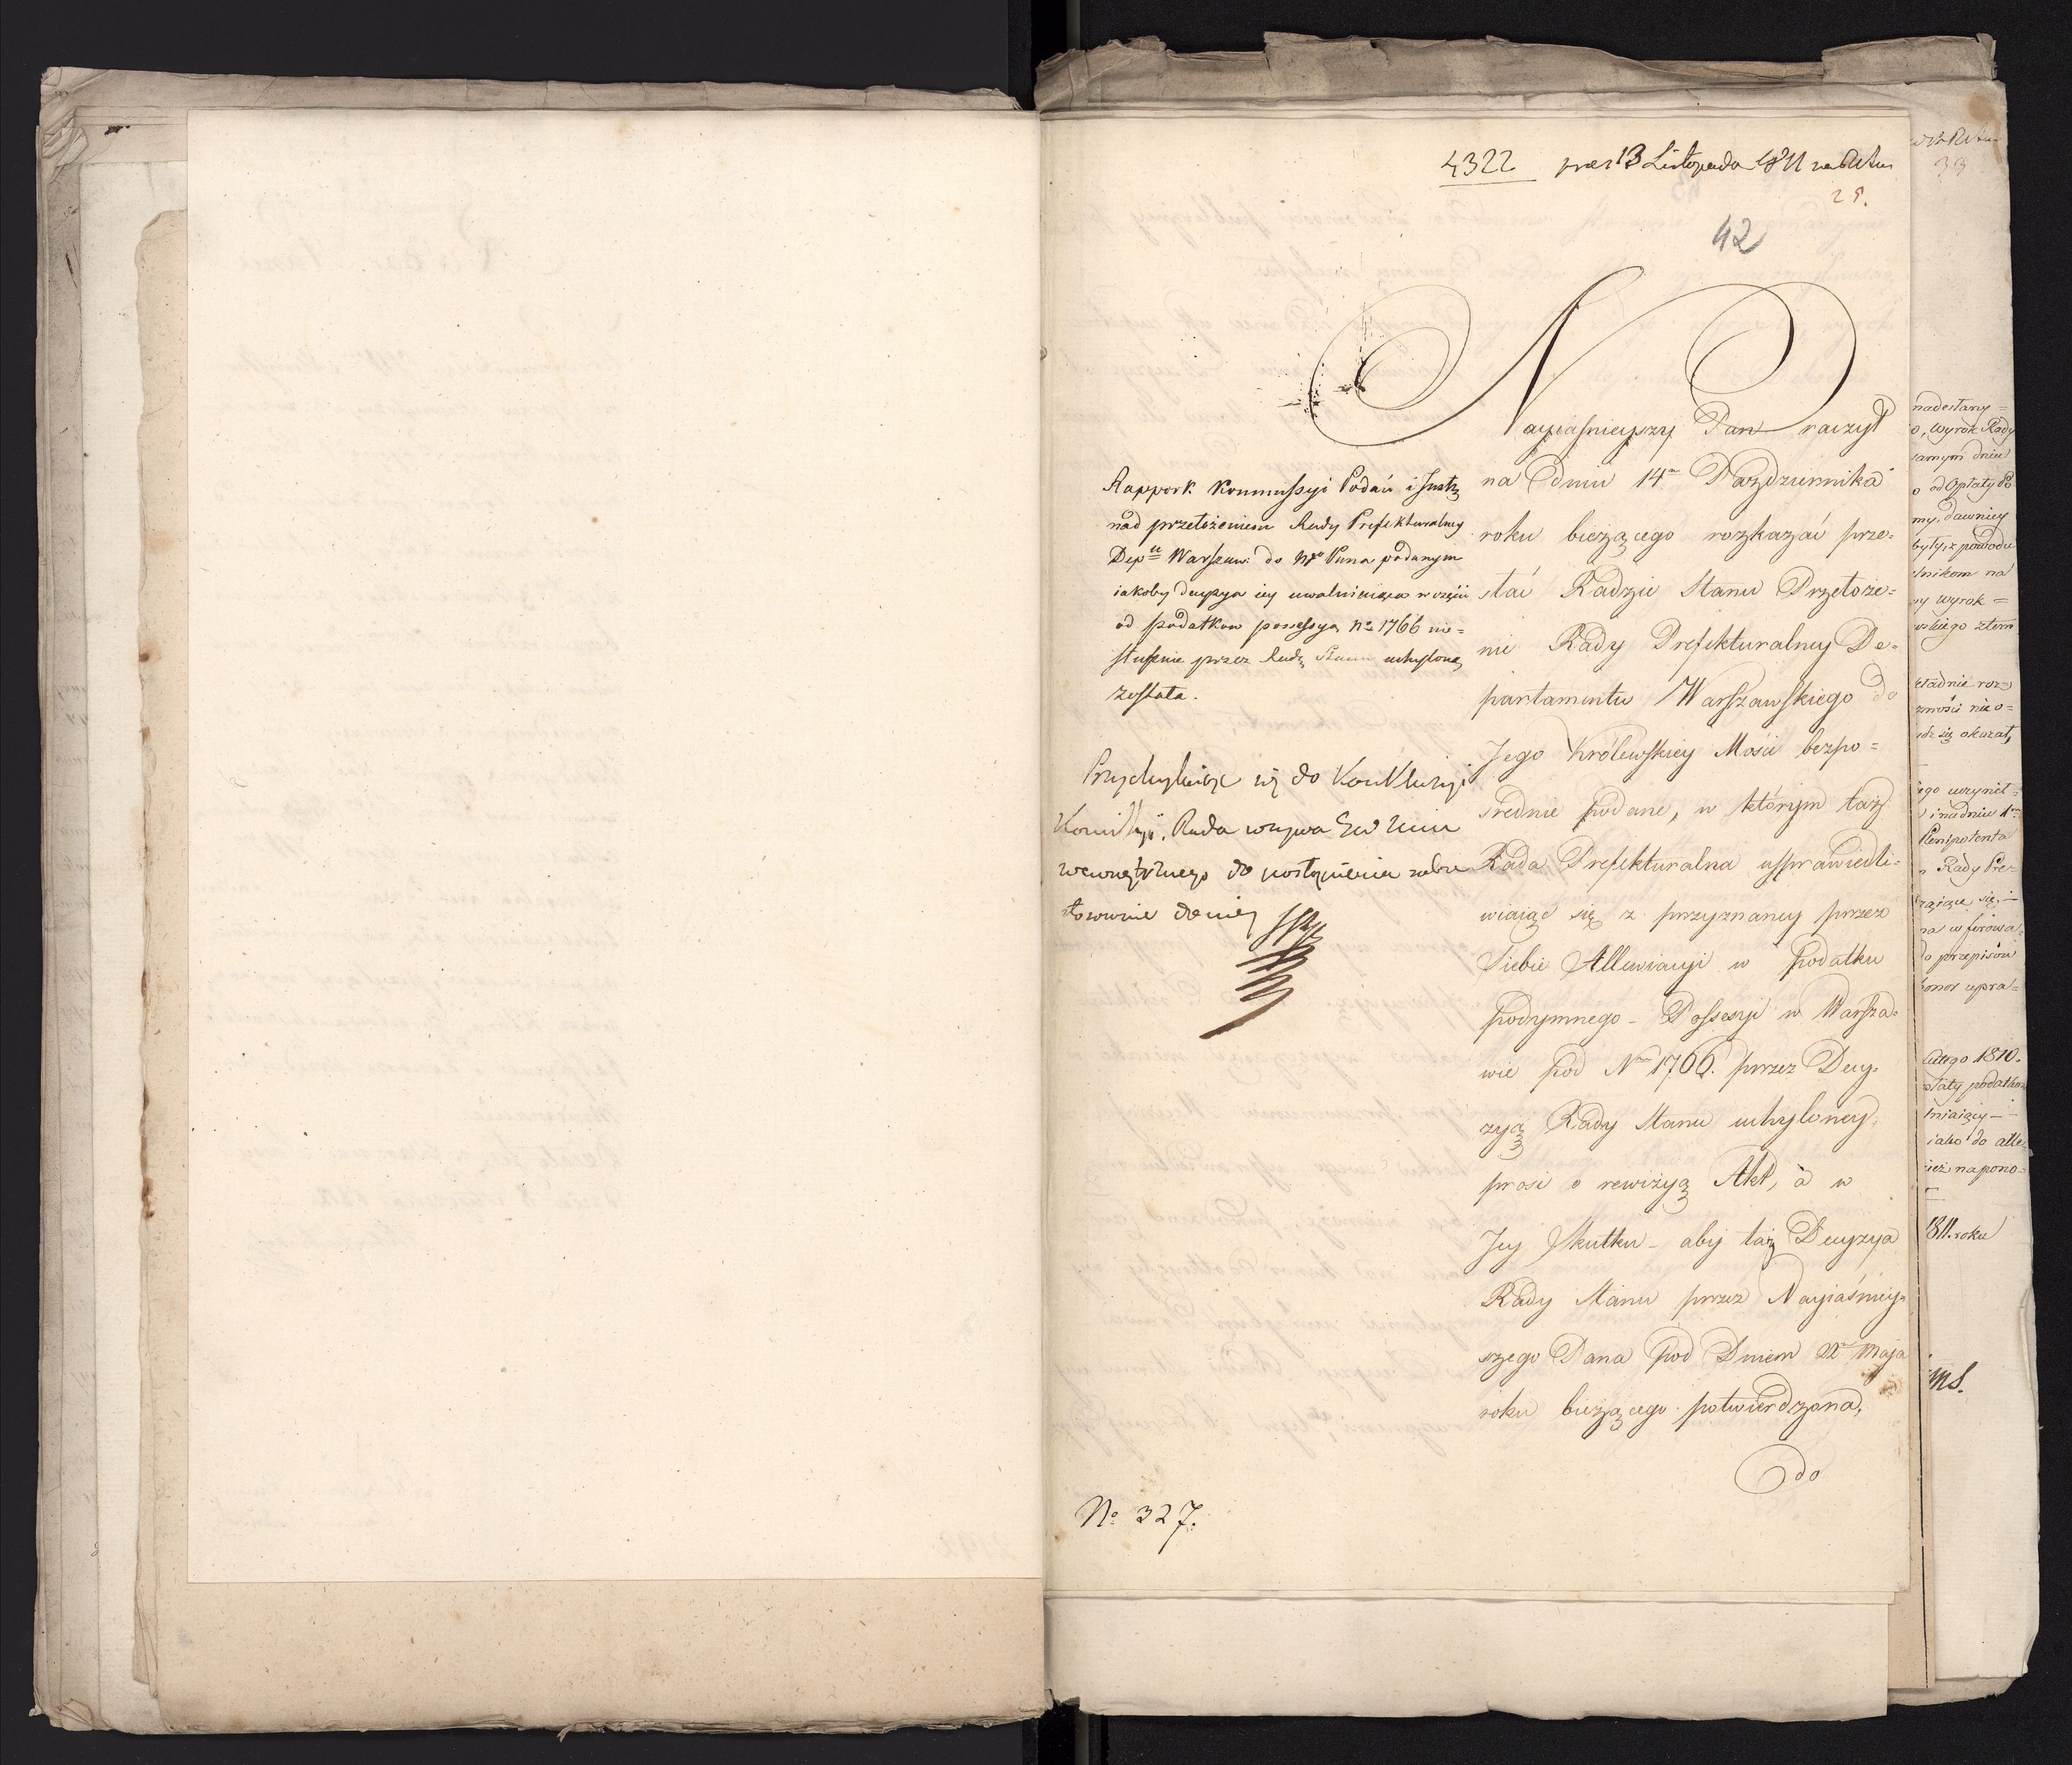 4322 prez 13 Listopada 1811 za Aktu
25.
42
Rapport Kommissyi Podań i Instr
nad przełożeniem Rady Prefekturalney
Depu Warszaw: do Nyo Pana podanym
iakoby decyzya iey uwalniaiąca w części
od podatkow possessyą No 1766 nie=
słusznie przez Radę Stanu uchyloną
została.
Przychylaiąc się do Konkluzyi
Kommissyi, Rada wzywa
wewnętrznego do postąpienia sobie
stosownie do niey
No 327.
Nayiaśnieyszy Pan raczył
na Dniu 14m Pazdziernika
roku bieżącego rozkazać prze=
słać Radzie Stanu Przełoże=
nie Rady Prefekturalney De=
partamentu Warszawskiego do
Jego Królewskiey Mości bezpo=
średnie podane, w którym taż
Rada Prefekturalna usprawiedli=
wiaiąc się z przyznaney przez
Siebie Allewiacyi w podatku
podymnego – Possessyi w Warsza=
wie pod Nm 1766. przez Decy=
zyą Rady Stanu uchyloney,
prosi o rewizyą Akt, à w
Jey Skutku – aby taż Decyzya
Rady Stanu przez Nayiaśniey=
szego Pana pod Dniem 22m Maja
roku bieżącego potwierdzona,
do
33
nadesłany=
o, wyrok Rady
samym dniu
o od Opłaty Po
my, dawniey
były, z powodu
lnikom na
ny wyrok =
wskiego złem
kładnie roz=
zności nie o=
idz się okazał,
ego uczynił=
i na dniu 1m
Plenipotenta
Rady Pre=
raiące się, –
na w firowa=
do przepisów
honor upra=
Lutego 1810.
płaty podatkow
lniaiący –
iako do alle
ież na pono=
1811. roku
ms.